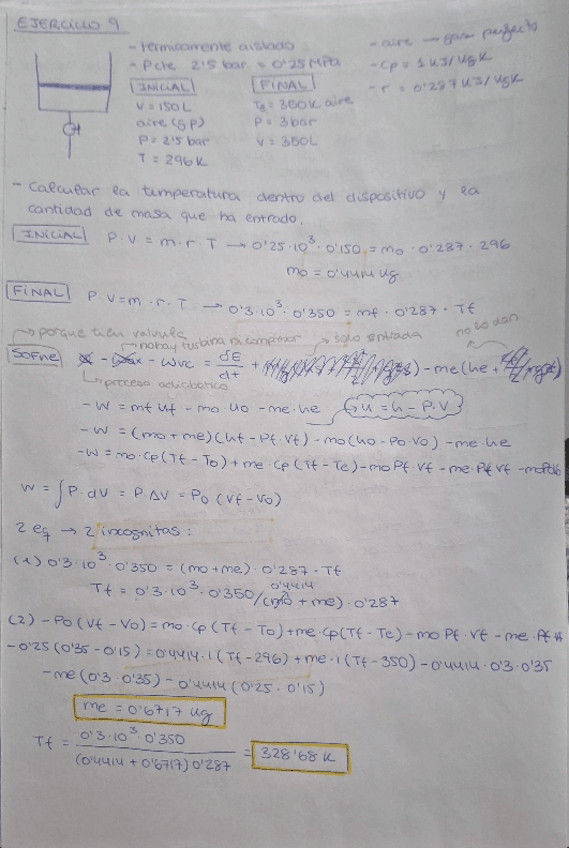 EJERCICIO 9
- térmicamente aislado
- Pcte 2'5 bar = 0'25 MPa
- aire → gas perfecto
- cp = 1 KJ/kgK
- r = 0'287 KJ/kgK
INICIAL
V = 150L
aire (g.p)
P = 2'5 bar
T = 296 K
FINAL
Te = 350K aire
P = 3 bar
V = 350L
- Calcular la temperatura dentro del dispositivo y la
cantidad de masa que ha entrado.
INICIAL P·V = m·r·T → 0'25·10³·0'150 = mo·0'287·296
mo = 0'4414 kg
FINAL P·V = m·r·T → 0'3·10³·0'350 = mf·0'287·Tf
→ porque tien valvula
→ no hay turbina ni compresor
→ solo entrada
no lo dan
- Wvc = dE/dt + - me (he +
↳ proceso adiabático
- W = mf uf - mo·uo - me·he
u = h - P·V
- W = (mo + me)(hf - Pf·Vf) - mo(ho - Po·Vo) - me·he
- W = mo·cp(Tf - To) + me·cp(Tf - Te) - mo Pf·Vf - me·Pf Vf - moPoVo
W = ∫P·dV = P·ΔV = Po (Vf - Vo)
2 eq → 2 incognitas:
(1) 0'3·10³·0'350 = (mo + me)·0'287·Tf
0'4414
Tf = 0'3·10³·0'350/(mo + me)·0'287
(2) - Po (Vf - Vo) = mo·cp(Tf - To) + me·cp(Tf - Te) - mo Pf·Vf - me·Pf
- 0'25 (0'35 - 0'15) = 0'4414·1(Tf - 296) + me·1(Tf - 350) - 0'4414·0'3·0'35
- me (0'3·0'35) - 0'4414 (0'25·0'15)
me = 0'6717 kg
Tf = 0'3·10³·0'350 / (0'4414 + 0'6717) 0'287 = 328'68 K